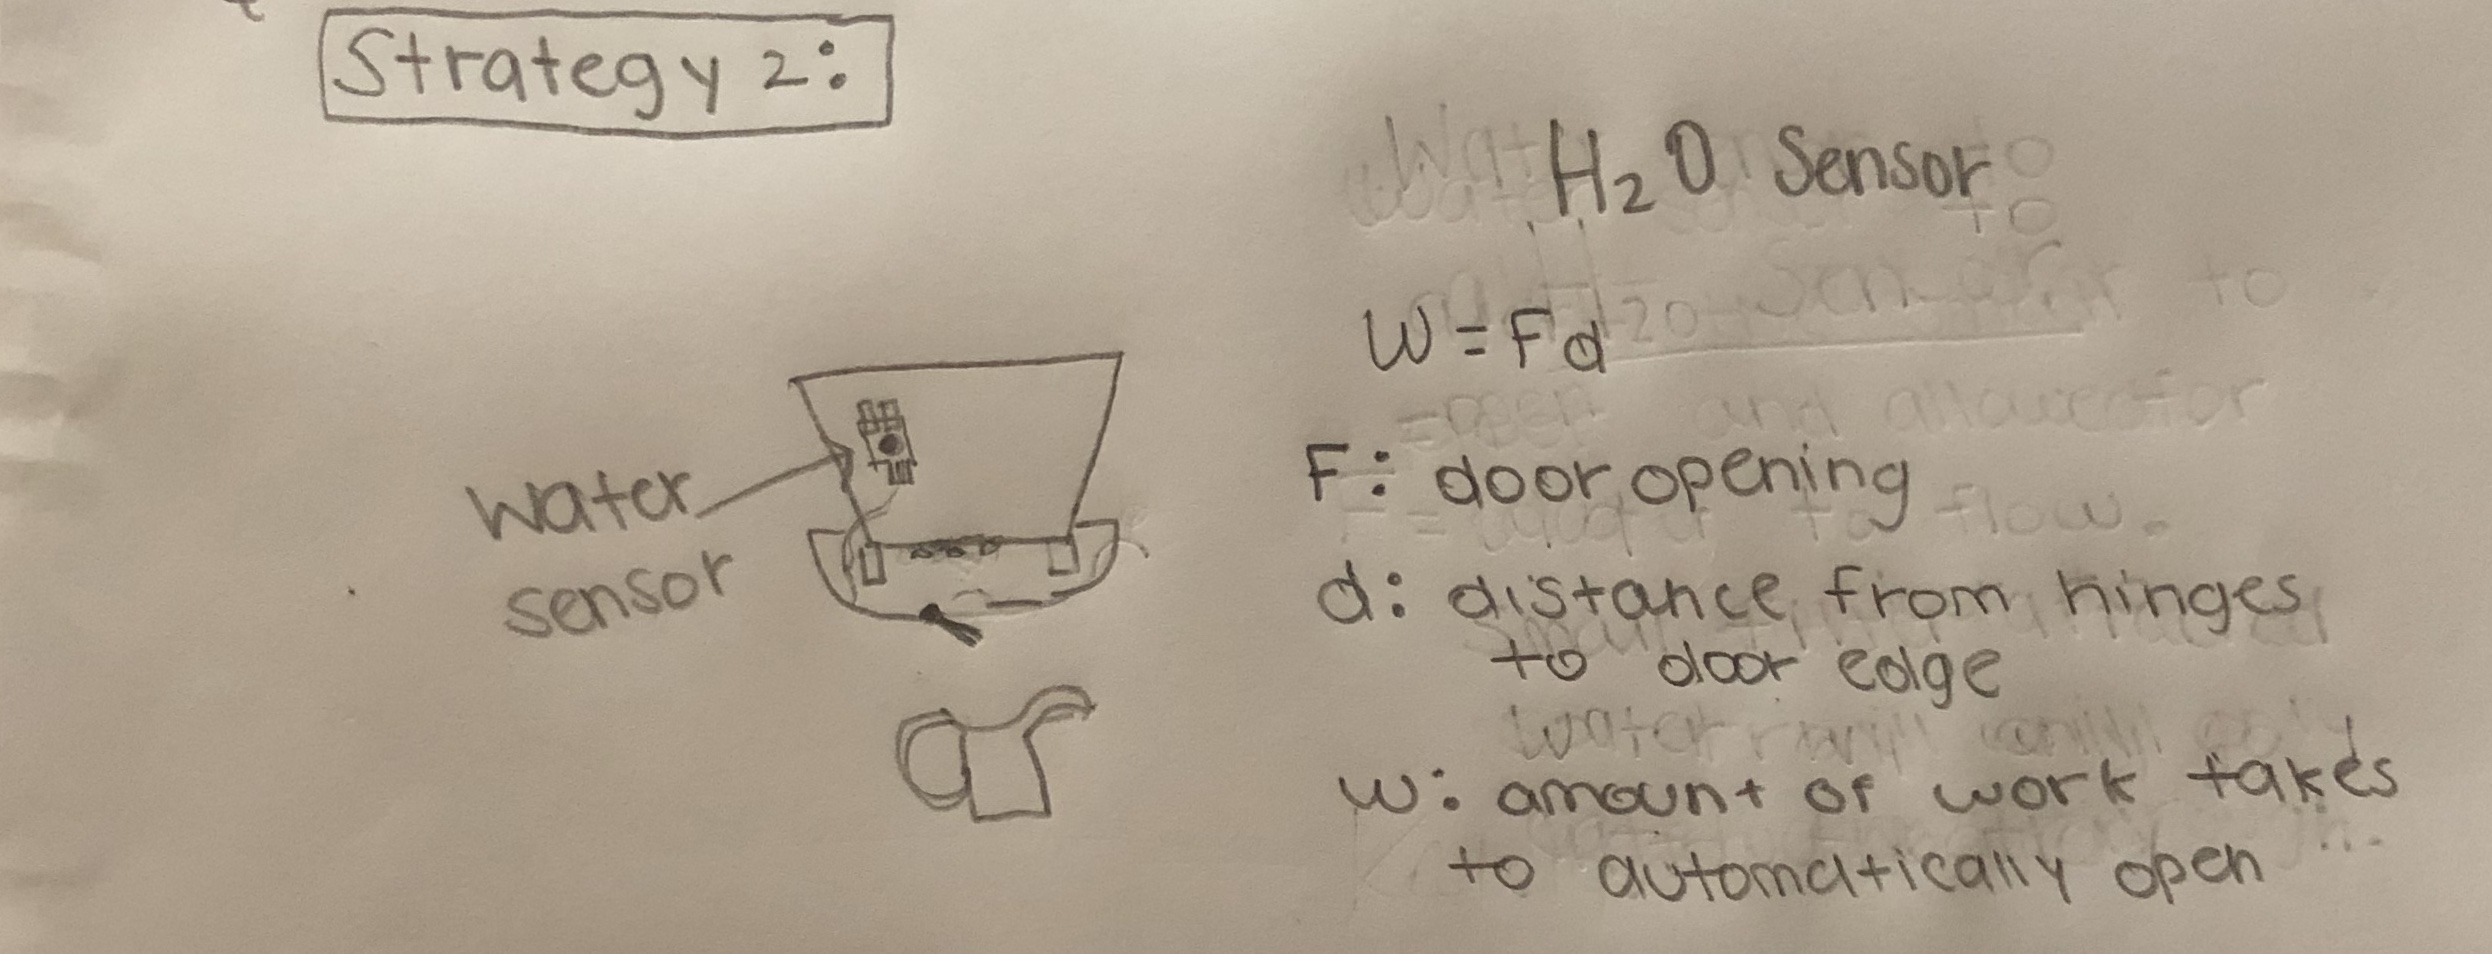 Strategy 2:
H₂O Sensor
W = Fd
F: door opening
d: distance from hinges
to door edge
W: amount of work takes
to automatically open
water
sensor